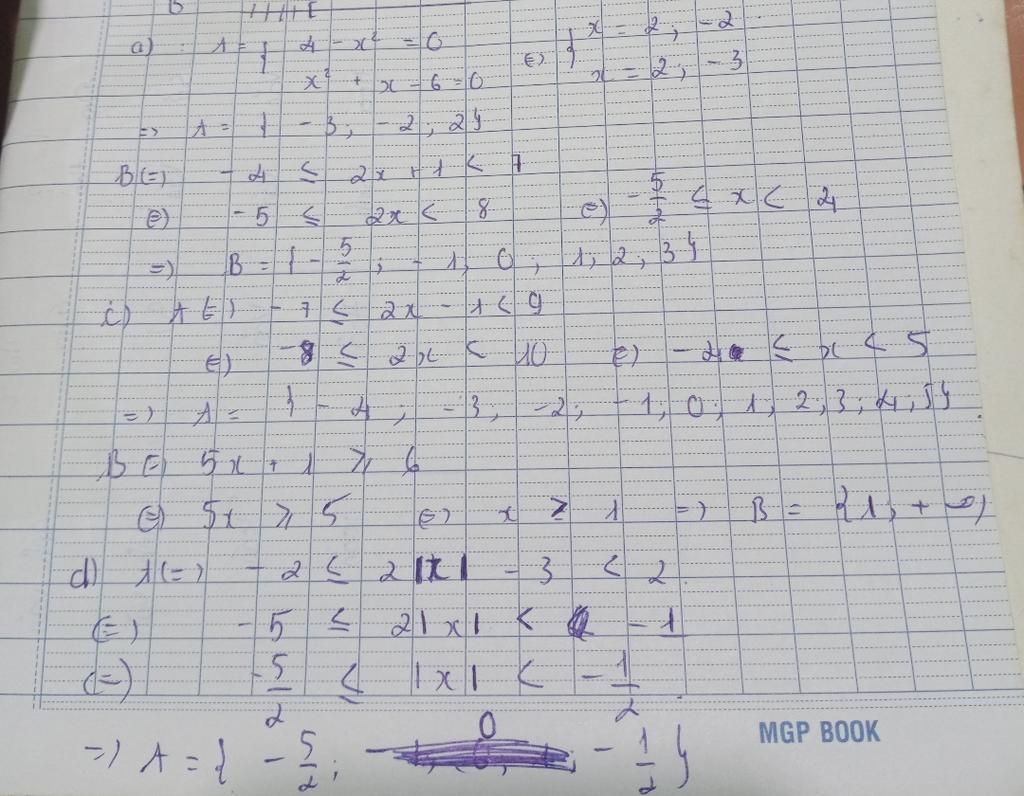 a) A = { 4 - x² = 0 (=) { x = 2 ; -2
x² + x - 6 = 0 x = 2 ; -3
=> A = { -3 ; -2 ; 2 }
B (=) -4 ≤ 2x + 1 < 7
(=) -5 ≤ 2x < 8 (=) -5/2 ≤ x < 4
=) B = { -5/2 ; -1, 0 ; 1 ; 2 ; 3 }
c) A (=) -7 ≤ 2x - 1 < 9
(=) -8 ≤ 2x < 10 (=) -4 ≤ x < 5
=) A = { -4 ; -3 ; -2 ; -1 ; 0 ; 1 ; 2 ; 3 ; 4 ; 5 }
B (=) 5x + 1 ≥ 6
(=) 5x ≥ 5 (=) x ≥ 1 =) B = { 1 ; + ∞ )
d) A (=) -2 ≤ 2|x| - 3 < 2
(=) -5 ≤ 2|x| < -1
(=) -5/2 ≤ |x| < -1/2
=) A = { -5/2 ; 0 ; -1/2 }
MGP BOOK